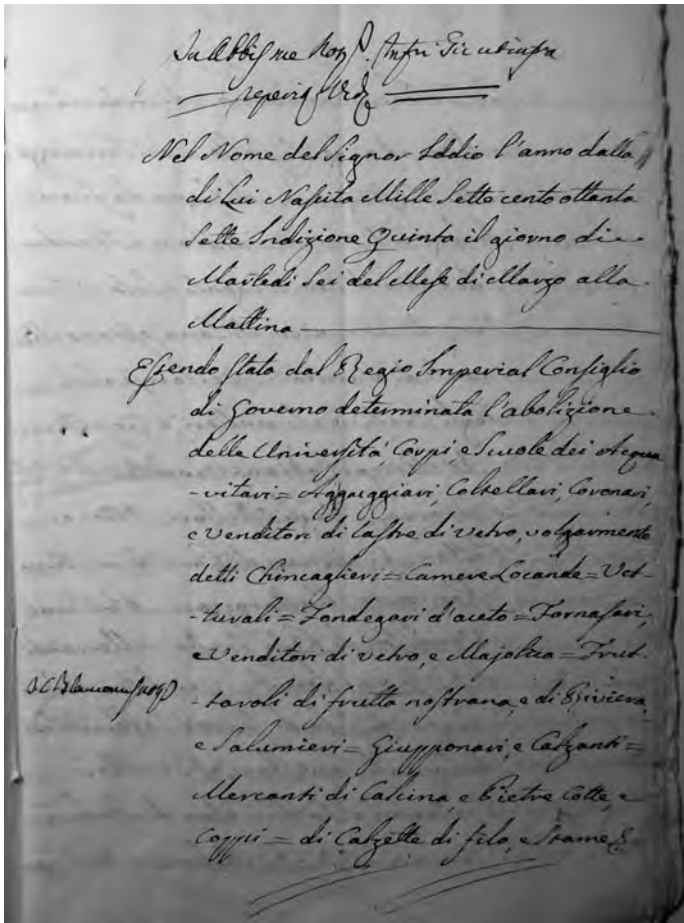 Nel Nome del Signor Iddio l'anno dalla
di Lui Nascita Mille Sette cento ottanta
sette Indizione Quinta il giorno di
Martedì Sei del Mese di Marzo alla
Mattina
Essendo stata dal Regio Imperial Consiglio
di Governo determinata l'abolizione
delle Università, Corpi, e Scuole dei Acqua
-vitari = Aggueggiari, Coltellari, Coronari,
e Venditori di lastre di vetro, volgarmente
detti Chincaglieri = Camere Locande = Vet-
-turali = Fondegari d'aceto = Fornasari,
e Venditori di vetro, e Majolica = Frut-
-taroli di frutta nostrana, e di Riviera,
e Salumieri = Giupponari, e Calzanti =
Mercanti di Calcina, e Pietre Cotte, e
Coppi = di Calzette di filo, e Stame